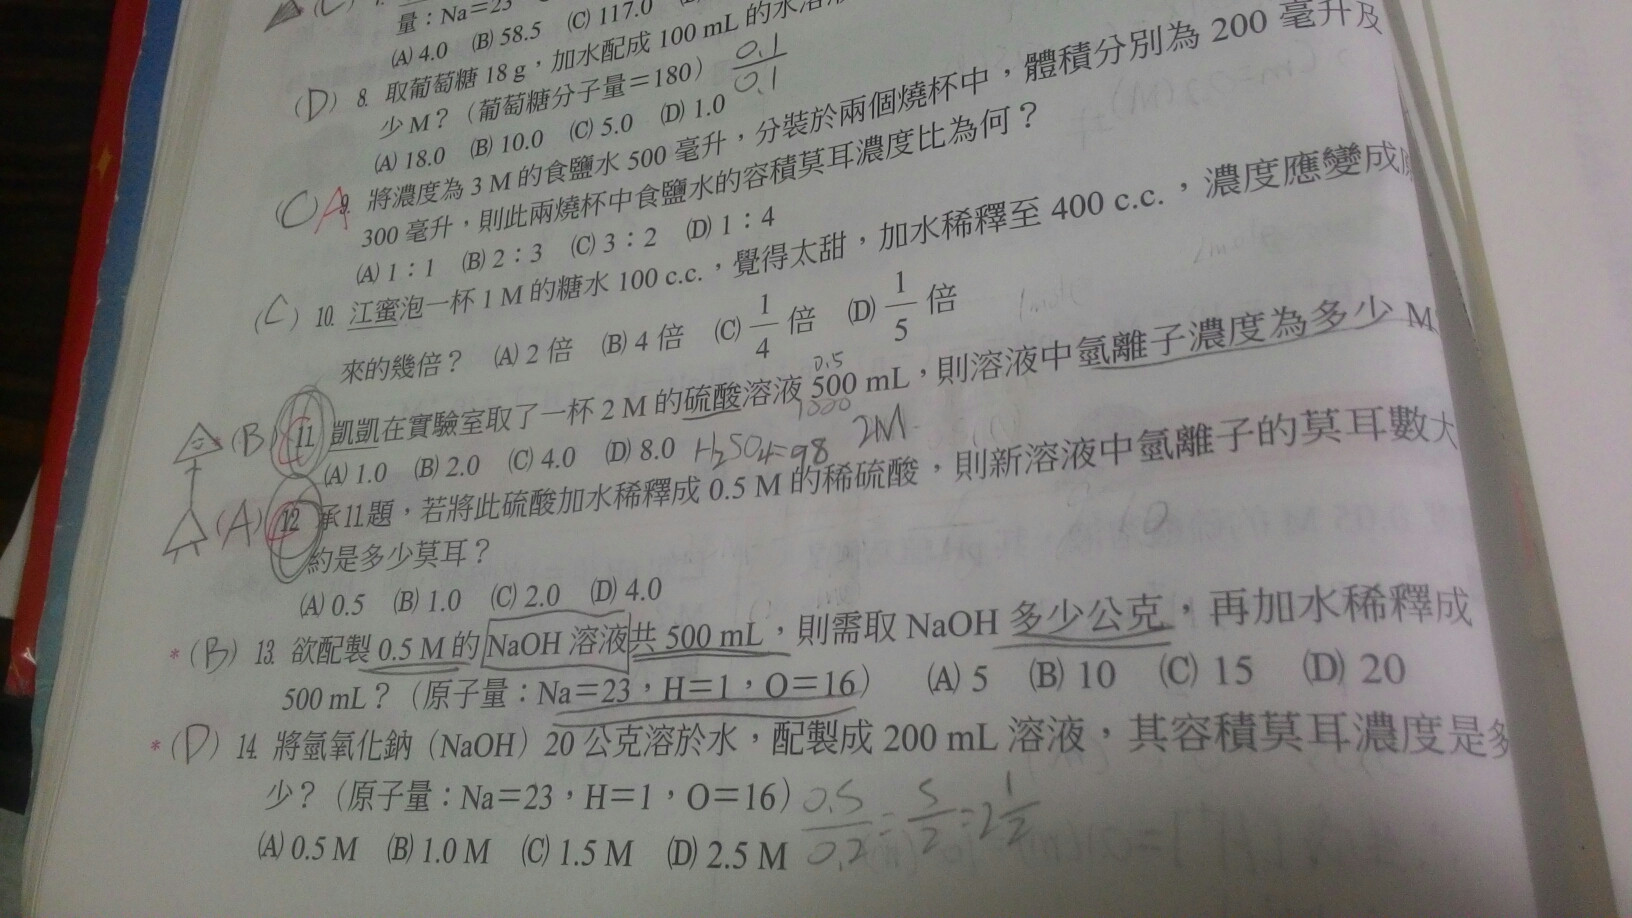 量：Na＝23
(A) 4.0 (B) 58.5 (C) 117.0
(D) 8. 取葡萄糖 18 g，加水配成 100 mL 的水溶液
少 M？（葡萄糖分子量＝180） 0.1
0.1
(A) 18.0 (B) 10.0 (C) 5.0 (D) 1.0
(C) A 9. 將濃度為 3 M 的食鹽水 500 毫升，分裝於兩個燒杯中，體積分別為 200 毫升及
300 毫升，則此兩燒杯中食鹽水的容積莫耳濃度比為何？
(A) 1：1 (B) 2：3 (C) 3：2 (D) 1：4
(C) 10. 江蜜泡一杯 1 M 的糖水 100 c.c.，覺得太甜，加水稀釋至 400 c.c.，濃度應變成原
來的幾倍？ (A) 2 倍 (B) 4 倍 (C) 1/4 倍 (D) 1/5 倍
0.5
(B) 11. 凱凱在實驗室取了一杯 2 M 的硫酸溶液 500 mL，則溶液中氫離子濃度為多少 M
1000
(A) 1.0 (B) 2.0 (C) 4.0 (D) 8.0 H2SO4=98 2M
(A) 12. 承11.題，若將此硫酸加水稀釋成 0.5 M 的稀硫酸，則新溶液中氫離子的莫耳數大
約是多少莫耳？
(A) 0.5 (B) 1.0 (C) 2.0 (D) 4.0
* (B) 13. 欲配製 0.5 M 的 NaOH 溶液共 500 mL，則需取 NaOH 多少公克，再加水稀釋成
500 mL？（原子量：Na＝23，H＝1，O＝16） (A) 5 (B) 10 (C) 15 (D) 20
* (D) 14. 將氫氧化鈉（NaOH）20 公克溶於水，配製成 200 mL 溶液，其容積莫耳濃度是多
少？（原子量：Na＝23，H＝1，O＝16） 0.5/0.2 = 5/2 = 2 1/2
(A) 0.5 M (B) 1.0 M (C) 1.5 M (D) 2.5 M